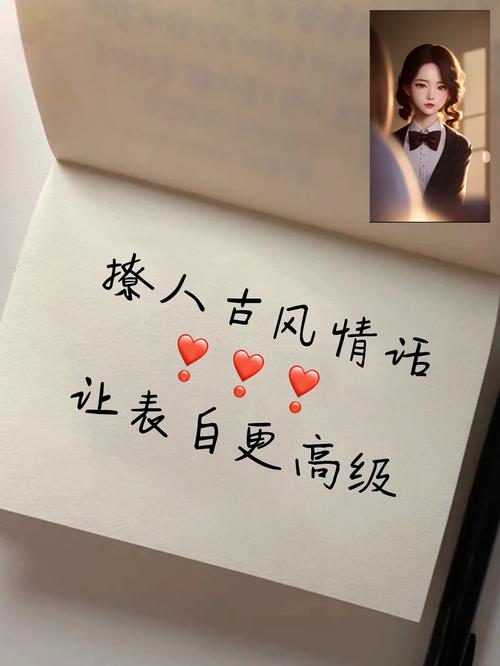 撩人古风情话
❣️❣️❣️
让表白更高级